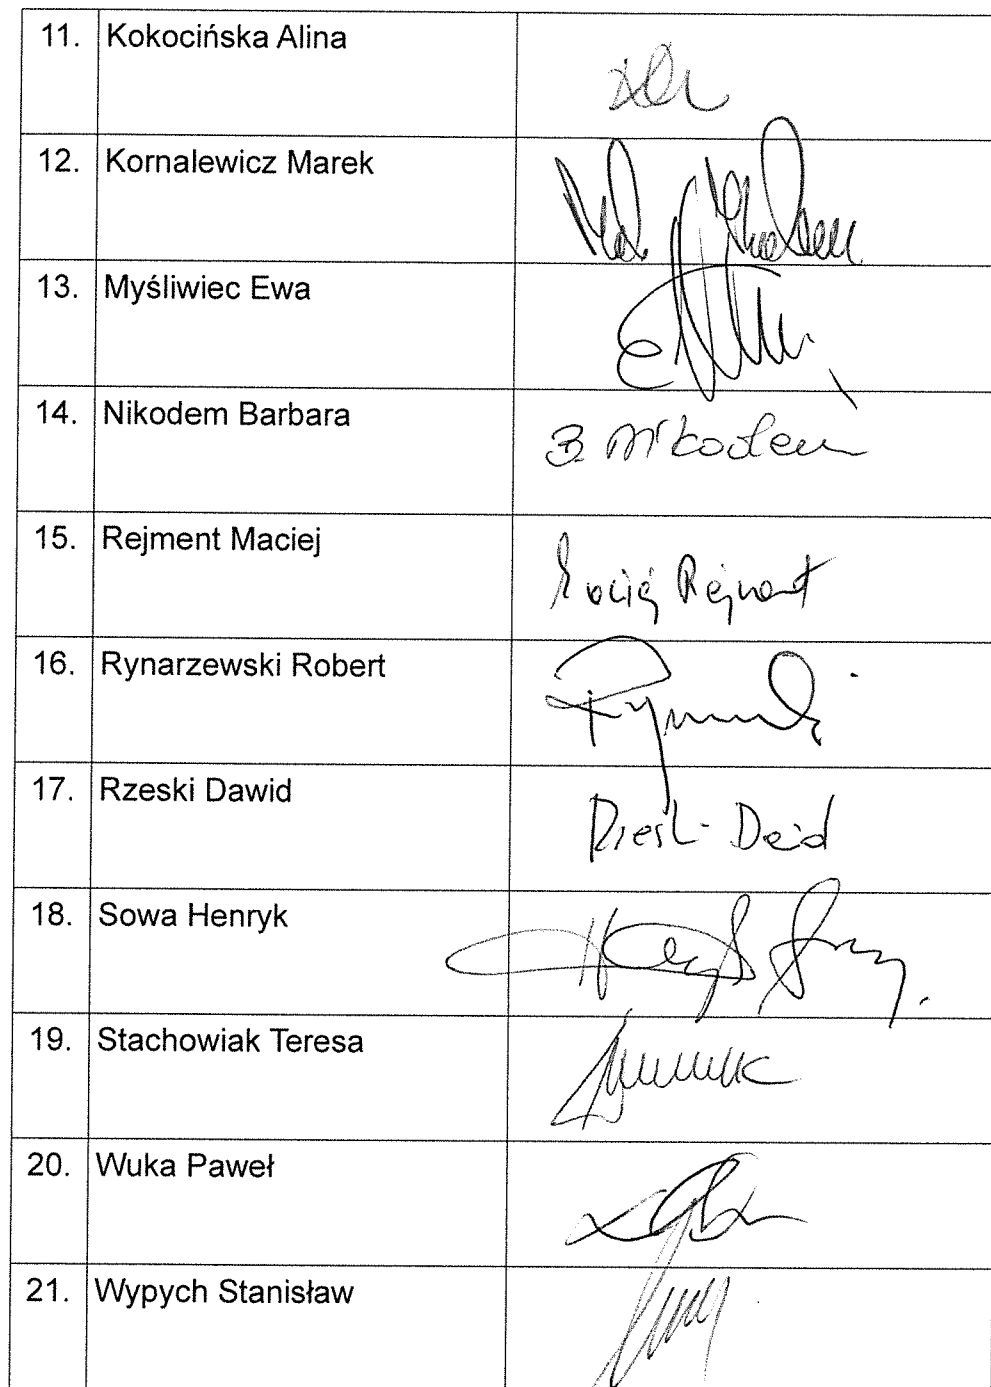 11. Kokocińska Alina
12. Kornalewicz Marek
13. Myśliwiec Ewa
14. Nikodem Barbara B. Nikodem
15. Rejment Maciej Maciej Rejment
16. Rynarzewski Robert
17. Rzeski Dawid Rzeski Dawid
18. Sowa Henryk
19. Stachowiak Teresa
20. Wuka Paweł
21. Wypych Stanisław